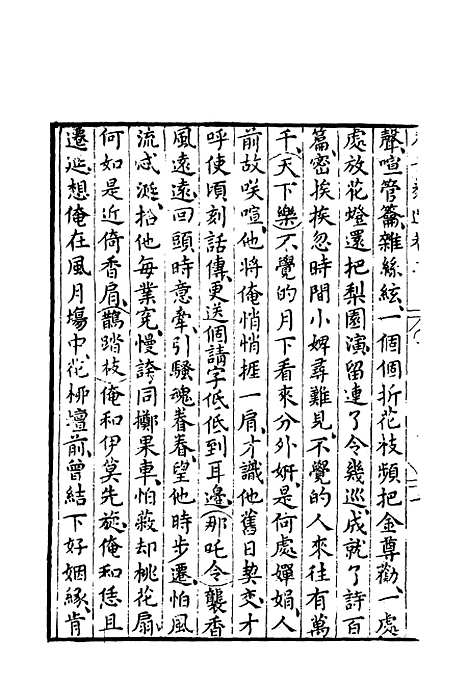 聲、喧管籥、雜絲絃、一個個折花枝頻把金尊勸、一處
處放花燈還把梨園演、留連了令幾巡、成就了詩百
篇、密挨挨忽時間小婢尋難見、不覺的人來往有萬
千、天下樂不覺的月下看來分外妍、是何處嬋娟、人
前故咲喧、他將俺悄悄捱一肩、才識他舊日契交、才
呼使頃刻話傳、更送個請字低低到耳邊、那吒令襲香
風遠遠、回頭時意牽、引騷魂眷眷、望他時步遷、怕風
流惑涎、拾他每業寃、慢誇同擲果車、怕蔽却桃花扇
何如是近倚香肩、鵲踏枝俺和伊莫先旋、俺和恁且
遷延、想俺在風月塲中、花栁壇前、曾結下好姻緣、肯